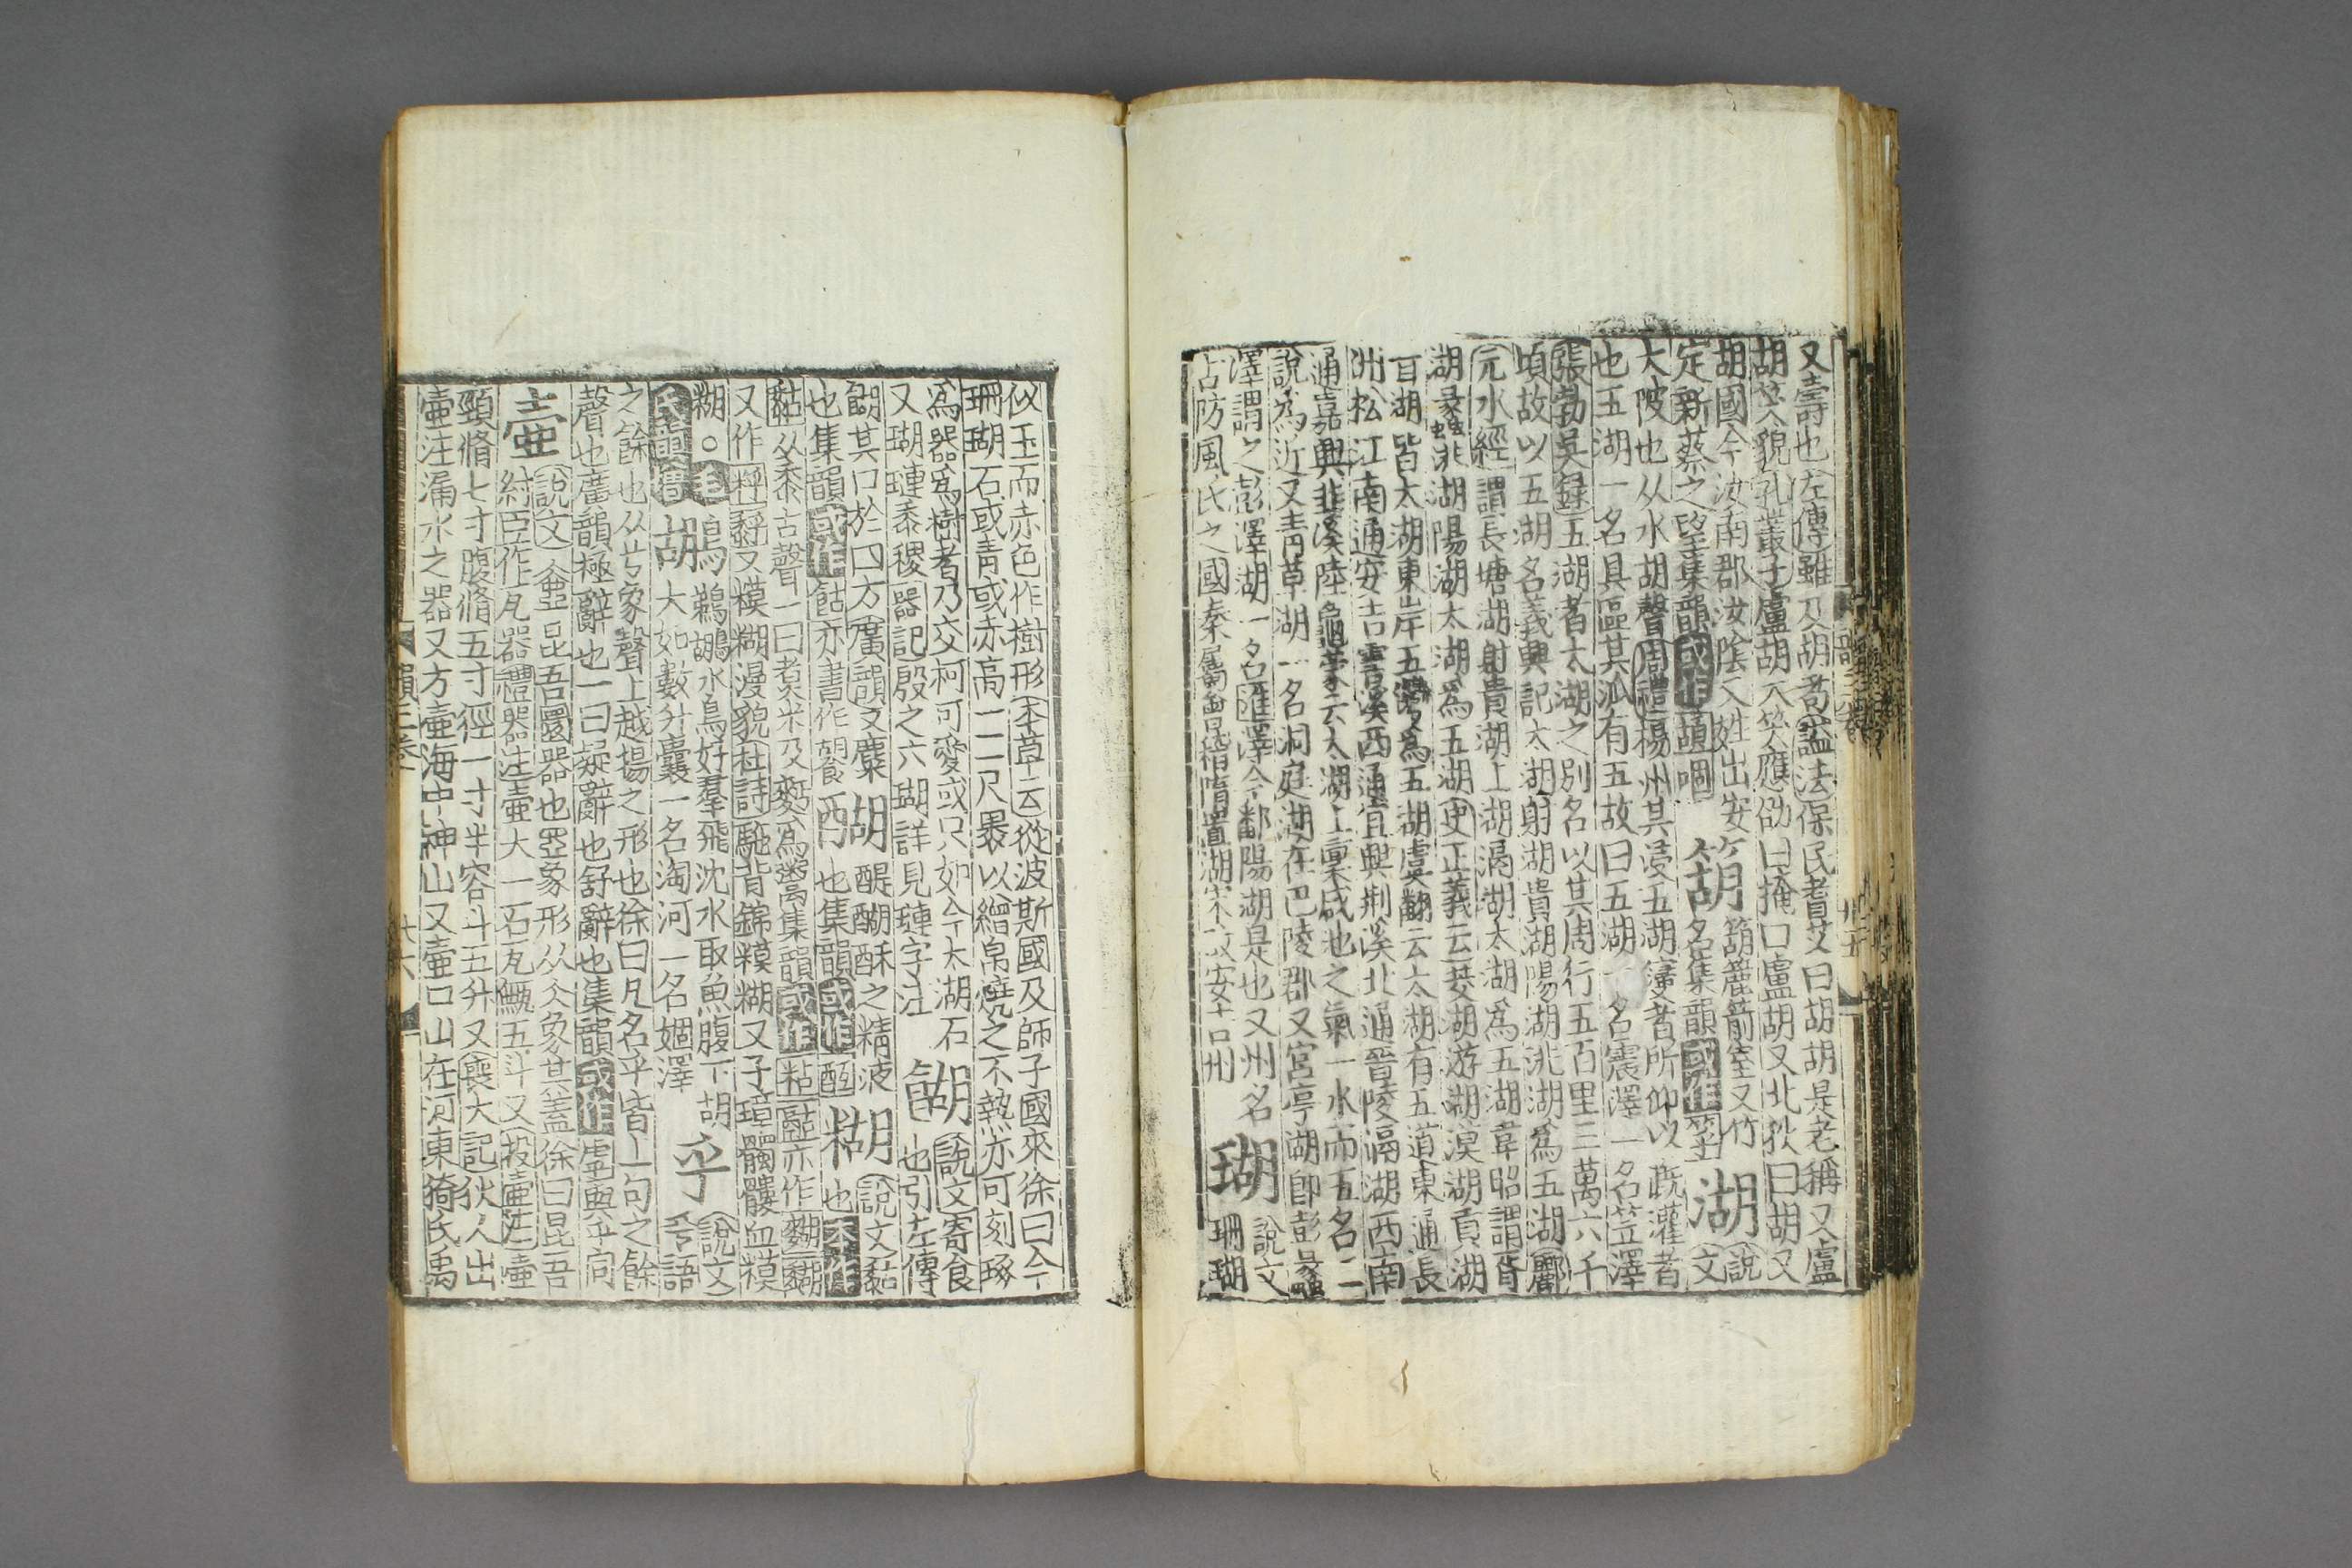 又壽也左傳雖及胡耇諡法保民耆艾曰胡胡是老稱又盧
胡笑貌孔叢子盧胡大笑應劭曰掩口盧胡又北狄曰胡又
胡國今汝南郡汝陰又姓出安
定新蔡之望集韻或作頶咽
箶
箶簏箭室又竹
名集韻或作
湖
說
文
大陂也从水胡聲周禮楊州其浸五湖寖者所仰以漑灌者
也五湖一名具區其派有五故曰五湖一名震澤一名笠澤
張勃吳錄五湖者太湖之別名以其周行五百里三萬六千
頃故以五湖名義興記太湖射湖貴湖陽湖洮湖爲五湖酈
元水經謂長塘湖射貴湖上湖滆湖太湖爲五湖韋昭謂胥
湖蠡湖洮湖陽湖太湖爲五湖史正義云菱湖游湖漠湖貢湖
胥湖皆太湖東岸五灣爲五湖虞翻云太湖有五道東通長
洲松江南通安吉霅溪西通宜興荆溪北通晉陵滆湖西南
通嘉興韭溪陸龜蒙云太湖上稟咸池之氣一水而五名二
說爲近又靑草湖一名洞庭湖在巴陵郡又宮亭湖卽彭蠡
澤謂之彭澤湖一名匯澤今鄱陽湖是也又州名
古防風氏之國秦屬會稽隋置湖宋改安吉州
瑚
說文
珊瑚
似玉而赤色作樹形本草云從波斯國及師子國來徐曰今
珊瑚石或靑或赤高一二尺褁以繒帛燒之不熱亦可刻琢
爲器爲樹者乃交柯可愛或只如今太湖石
又瑚璉黍稷器記殷之六瑚詳見璉字注
餬
說文寄食
也引左傳
餬其口於四方廣韻又麋
也集韻或作䬢亦書作䭌
醐
醍醐酥之精液
也集韻或作
糊
說文黏
也本作
黏从黍古聲一曰煑米及麪爲鬻集韻或作粘亦作
又作䴸又模糊漫貌杜詩駞背錦模糊又子璋髑髏血糢
糊○毛
氏韻增
鶘
鵜鶘水鳥好羣飛沈水取魚腹下胡
大如數升囊一名淘河一名婟澤
乎
說文
乎語
之餘也从兮象聲上越揚之形也徐曰凡名乎皆上句之餘
聲也廣韻極辭也一曰疑辭也舒辭也集韻或作虖與乎同
壺
說文壷昆吾圜器也壺象形从大象其蓋徐曰昆吾
紂臣作瓦器禮器注壺大一石瓦甒五斗又投壺注壺
頸脩七寸腹脩五寸徑一寸半容斗五升又喪大記狄人出
壺注漏水之器又方壺海中神山又壺口山在河東猗氏禹
韻二卷
六六